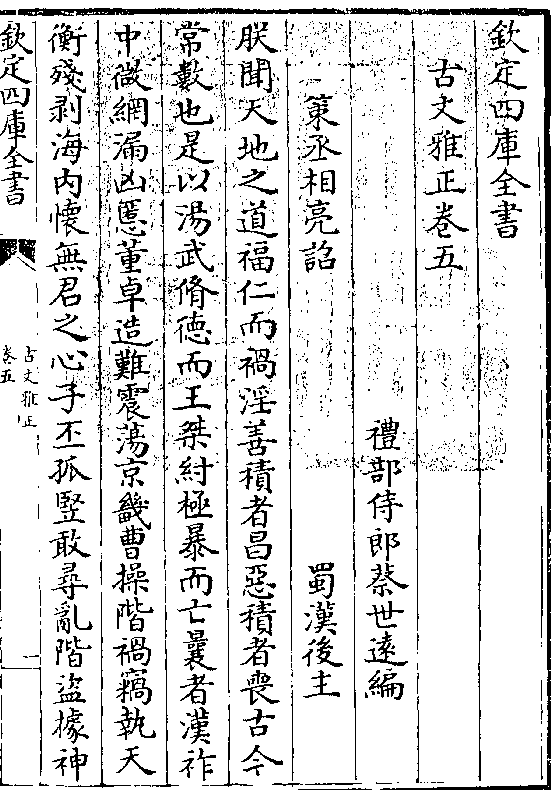 欽定四庫全書
古文雅正卷五
禮部侍郎蔡世遠編
策丞相亮詔
蜀漢後主
朕聞天地之道福仁而禍淫善積者昌惡積者喪古今
常數也是以湯武脩德而王桀紂極暴而亡曩者漢祚
中微網漏凶慝董卓造難震蕩京畿曹操階禍竊執天
衡殘剥海内懷無君之心子丕孤豎敢尋亂階盜據神
欽定四庫全書
古文雅正
卷五
一